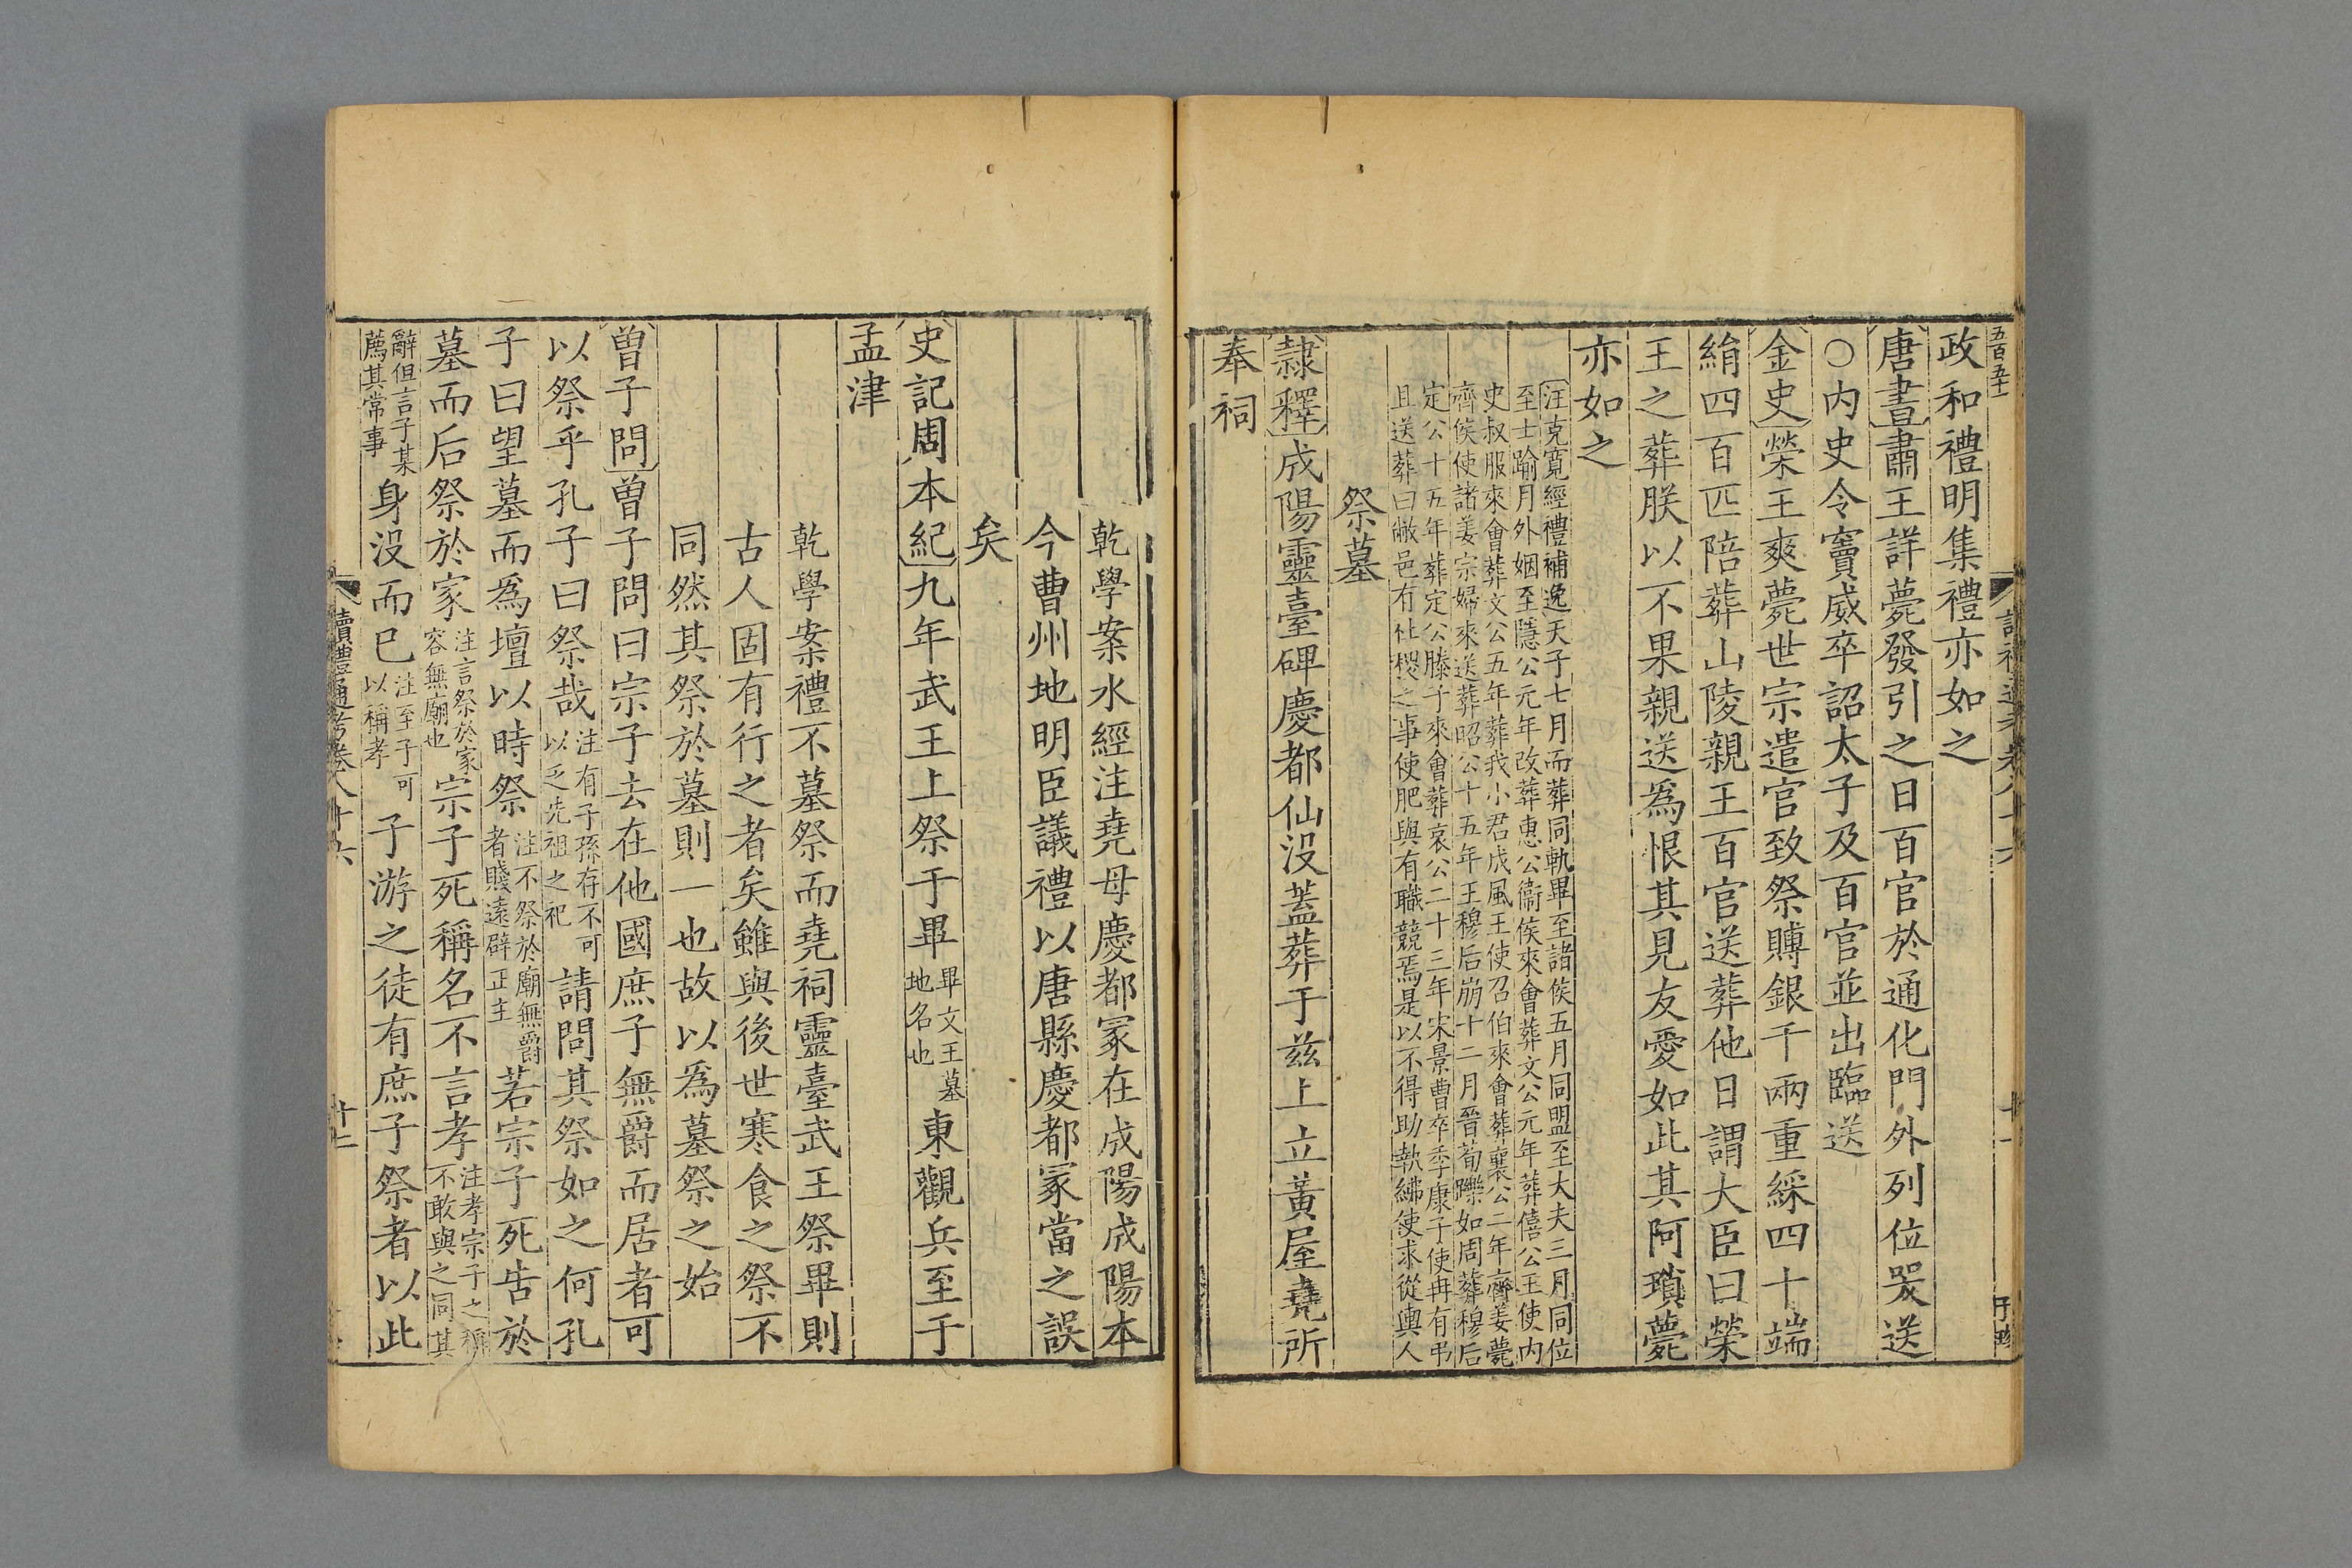 五百五十
政和禮明集禮亦如之
唐書肅王詳薨發引之日百官於通化門外列位哭送
○内史令竇威卒詔太子及百官並出臨送
金史榮王爽薨世宗遣官致祭賻銀千兩重綵四十端
絹四百匹陪葬山陵親王百官送葬他日謂大臣曰榮
王之葬朕以不果親送爲恨其見友愛如此其阿瑣薨
亦如之
汪克寬經禮補逸天子七月而葬同軌畢至諸侯五月同盟至大夫三月同位
至士踰月外姻至隱公元年改葬惠公衞侯來會葬文公元年葬僖公王使内
史叔服來會葬文公五年葬我小君成風王使召伯來會葬襄公二年齊姜薨
齊侯使諸姜宗婦來送葬昭公十五年王穆后崩十二月晉荀躒如周葬穆后
定公十五年葬定公滕子來會葬哀公二十三年宋景曹卒季康子使冉有弔
且送葬曰敝邑有社稷之事使肥與有職競焉是以不得助執紼使求從輿人
祭墓
隸釋成陽靈臺碑慶都仙没蓋葬于兹上立黃屋堯所
奉祠
乾學案水經注堯母慶都冢在成陽成陽本
今曹州地明臣議禮以唐縣慶都冢當之誤
矣
史記周本紀九年武王上祭于畢畢文王墓地名也東觀兵至于
孟津
乾學案禮不墓祭而堯祠靈臺武王祭畢則
古人固有行之者矣雖與後世寒食之祭不
同然其祭於墓則一也故以爲墓祭之始
曾子問曾子問曰宗子去在他國庶子無爵而居者可
以祭乎孔子曰祭哉注有子孫存不可以乏先祖之祀請問其祭如之何孔
子曰望墓而爲壇以時祭注不祭於廟無爵者賤遠辟正主若宗子死告於
墓而后祭於家注言祭於家容無廟也宗子死稱名不言孝注孝宗子之稱不敢與之同其
辭但言子某薦其常事身没而已注至子可以稱孝子游之徒有庶子祭者以此
讀禮通考卷八十六
十二